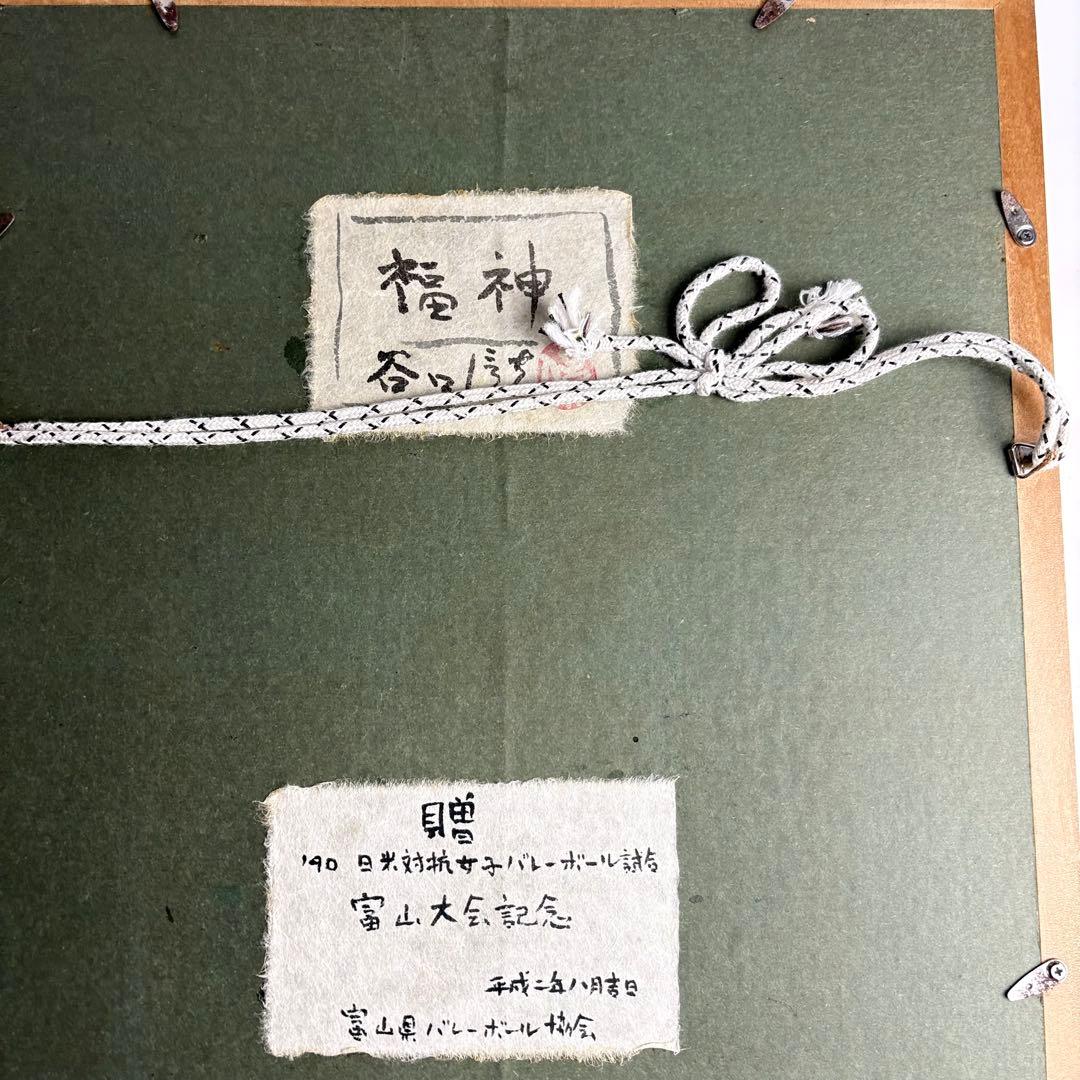 福神
谷口信
贈
'90 日米対抗女子バレーボール試合
富山大会記念
平成二年八月吉日
富山県バレーボール協会